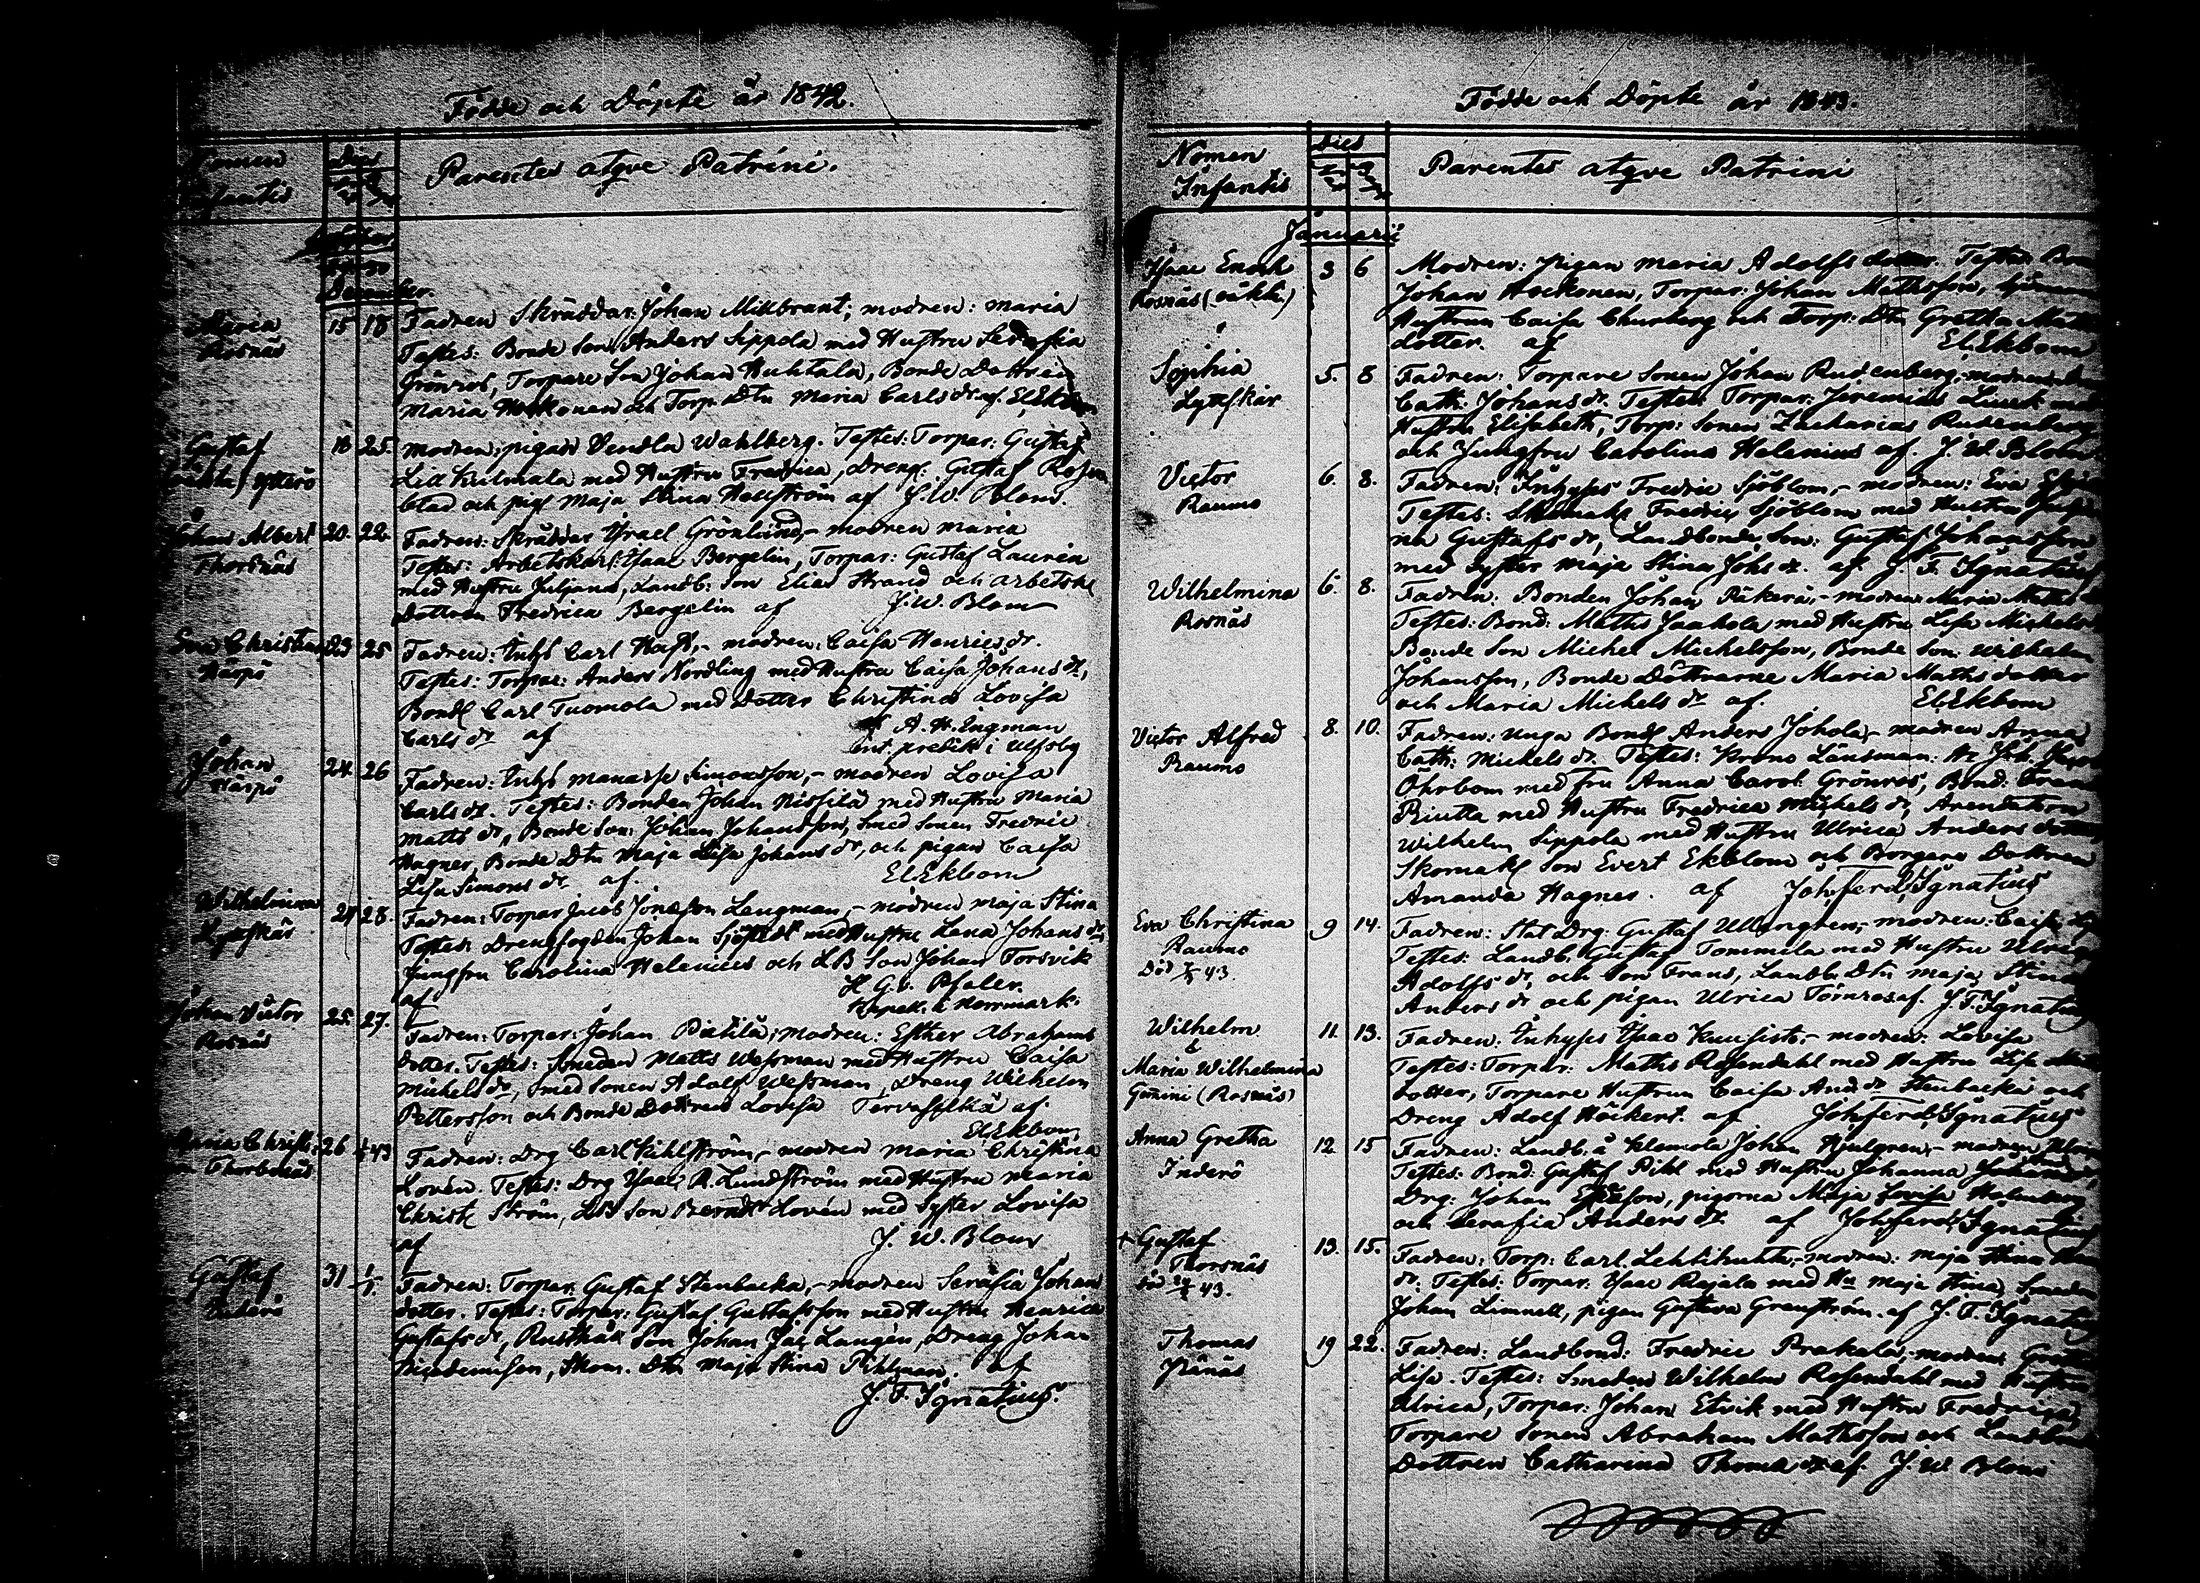 Födde och Döpte år 1842.
Nomen Infantis
Dies
Parentes atqve Patrini.
December.
Maria
Rosnäs
15 18
Fadren Skräddar: Johan Millbrant; modren: Maria
Testes: Bonde Son Anders Sippola med Hustru Serafia
Grönros, Torpare Son Johan Huhtala, Bonde Dottren
Maria Heckonen och Torp. Dtn Maria Carls dr. af El. Ekbom
Gustaf
Ytterö
18 25.
modren: pigan Vendla Wahlberg. Testes: Torpar: Gustaf
med Hustru Fredrica, Dreng: Gustaf Rosen
blad och pig Maja Stina Hellström af J. W. Blom.
Johan Albert
Thorsnäs
20. 22.
Fadren: Skräddar Israel Grönlund,- modren Maria
Testes: Arbetskarl Isaac Bergelin, Torpar: Gustaf Laurén
med Hustru Juliana, Landb: Son Elias Strand och Arbetsk
Dottren Fredrica Bergelin af J. W. Blom
Eva Christina
23 25
Fadren: Inhs Carl Hast,- modren: Caisa Henrics dr.
Testes: Torpar: Anders Nordling med Hustru Caisa Johans dr,
Bond Carl Tuomola med Dotter Christina Lovisa
Carls dr af A. H. Engman
Ext. predik i Ulfsby
Johan
24. 26
Fadren: Inhs Manasse Simonsson,- modren Lovisa
Carls dr. Testes: Bonden Johan Nissilä med Hustru Maria
Matts dr, Bonde Son: Johan Johansson, Smed Sonen Fredric
Wagner, Bonde Dtn Maja Lisa Johans dr, och pigan Caisa
Lisa Simons dr af. El. Ekbom
Wilhelmina
24 28.
Fadren: Torpar Jacob Jonasson Lengman,- modren Maja Stina
Testes: Drengfogden Johan Sjöstedt med Hustru Lena Johans dr
Jungfru Carolina Helenius och LB Son Johan Torsvik
af H G. v. Pfaler.
Kapell. i Norrmark.
Johan Victor
Rosnäs
25. 27.
Fadren: Torpar: Johan Pietilä; modren: Esther Abrahams
dotter. Testes: Smeden Matts Wessman med Hustru Caisa
Michels dr, Smed Sonen Adolf Wessman, Dreng Wilhelm
Pettersson och Bonde Dottren Lovisa af.
El. Ekbom
Maria Christi-
na Thorsnäs
26
Fadren: Drg Carl Kihlström,- modren Maria Christina
Lovén. Testes: Drg Isaac R. Lundström med Hustru Maria
Christ: Ström, LB Son Berndt Lovén med Syster Lovisa
af J. W. Blom
Gustaf
Inderö
31
Fadren: Torpar: Gustaf Stenbacka,- modren Serafia Johans
dotter. Testes: Torpar: Gustaf Gustafsson med Hustru Henrica
Gustafs dr, Rusthål Son Johan Jac Laugén, Dreng Johan
Dtn Maja Stina Pihlman. af
J. F. Ignatius.
Födde och Döpte år 1843.
Nomen
Infantis
Dies
Parentes atqve Patrini
Januarii
Isaac Enoch
Rosnäs (oäkta)
3 6
Modren: pigan Maria Adolfs dotter. Testes Bon
Johan Heckonen, Torpar: Johan Mathsson,
Hustrun Caisa Churberg och Torp: Dtn Gretha Maths
dotter. af El. Ekbom
Sophia
5. 8
Fadren: Torpare Sonen Johan Rudenberg; modren
Cath: Johans dr. Testes Torpar: Jeremias
Hustru Elisabeth, Torp: Sonen Zacharias Rudenberg
och Jungfru Carolina Helenius af. J. W. Blom
Victor
Raumo
6. 8.
Fadren: Inhyses Fredric Sjöblom,- modren: Eva
Testes: Skomak Fredric Sjöblom med Hustru
na Gustafs dr, Landbonde Son: Gustaf Johansson
med Syster Maja Stina Johs dr. af. J. F. Ignatius
Wilhelmina
Rosnäs
6. 8.
Fadren: Bonden Johan Päkerä,- modren Maria Maths
Testes: Bond: Maths Jaahola med Hustru Lisa Michels
Bonde Son Michel Michelsson, Bonde Son: Wilhelm
Johansson, Bonde Döttrarne Maria Maths dotter
och Maria Michels dr af. El. Ekbom
Victor Alfred
Raumo
8. 10.
Fadren: Unga Bond Anders Johola,- modren Anna
Cath: Michels dr. Testes: Krono Länsman: Hr Joh.
Öhrbom med fru Anna Carol: Grönros, Bond:
Riutta med Hustru Fredrica Michels dr, Arendatorn
Wilhelm Sippola med Hustru Ulrica Anders dotter
Skomak Son Evert Ekblom och Borgare Dottren
Amanda Hagner. af Joh. Ferd. Ignatius
Eva Christina
Raumo
Död 43.
9 14.
Fadren: Stat Drg: Gustaf Ullengren,- modren: Caisa
Testes: Landb. Gustaf Tommila med Hustru Ulrica
Adolfs dr, och Son Frans, Landb. Dtn Maja Stina
Anders dr och pigan Ulrica Törnros af. J. F. Ignatius
Wilhelm
&
Maria Wilhelmina
Gemini (Rosnäs)
11. 13.
Fadren: Inhyses Isaac Kuusisto,- modren: Lovisa
Testes: Torpar: Maths Rosendahl med Hustru Lisa
dotter, Torpare Hustrun Caisa And. dr Stenbacka och
Dreng Adolf Häckert. af Joh. Ferd. Ignatius
Anna Gretha
Inderö
12 15
Fadren: Landb. å Klemola Johan Hjulgren,- modren
Testes: Bond: Gustaf Pihl med Hustru Johanna
Drg: Johan Ersson, pigorna Maja Lovisa Holmberg
och Serafia Anders dr. af Joh. Ferd. Ignatius
+ Gustaf
Thorsnäs
död 43.
13. 15.
Fadren: Torp: Carl Lehtikuhta,- modren: Maja Stina
dr. Testes: Torpar: Isaac Rajala med Hu Maja Stina, Smeden
Johan Limnell, pigan Gustava Granström. af J. F. Ignatius
Thomas
19 22.
Fadren: Landbond: Fredric Prakala,- modren Greta
Lisa. Testes: Smeden Wilhelm Rosendahl med Hustru
Ulrica, Torpar: Johan Etvik med Hustru Fredrica,
Torpare Sonen Abraham Mathsson och Landbo
Dottren Catharina Thomas dr af. J. W. Blom